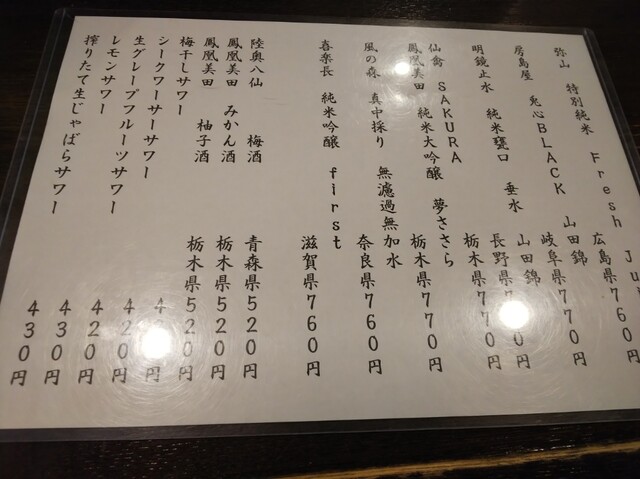 弥山 特別純米 Fresh 広島県760円
房島屋 兎心BLACK 山田錦 岐阜県770円
明鏡止水 純米甕口 垂水 山田錦 長野県 円
仙禽 SAKURA 栃木県770円
鳳凰美田 純米大吟醸 夢ささら 栃木県770円
風の森 真中採り 無濾過無加水 奈良県760円
喜楽長 純米吟醸 first 滋賀県760円
陸奥八仙 梅酒 青森県520円
鳳凰美田 みかん酒 栃木県520円
鳳凰美田 柚子酒 栃木県520円
梅干しサワー 円
シークワーサーサワー 420円
生グレープフルーツサワー 420円
レモンサワー 430円
搾りたて生じゃばらサワー 430円